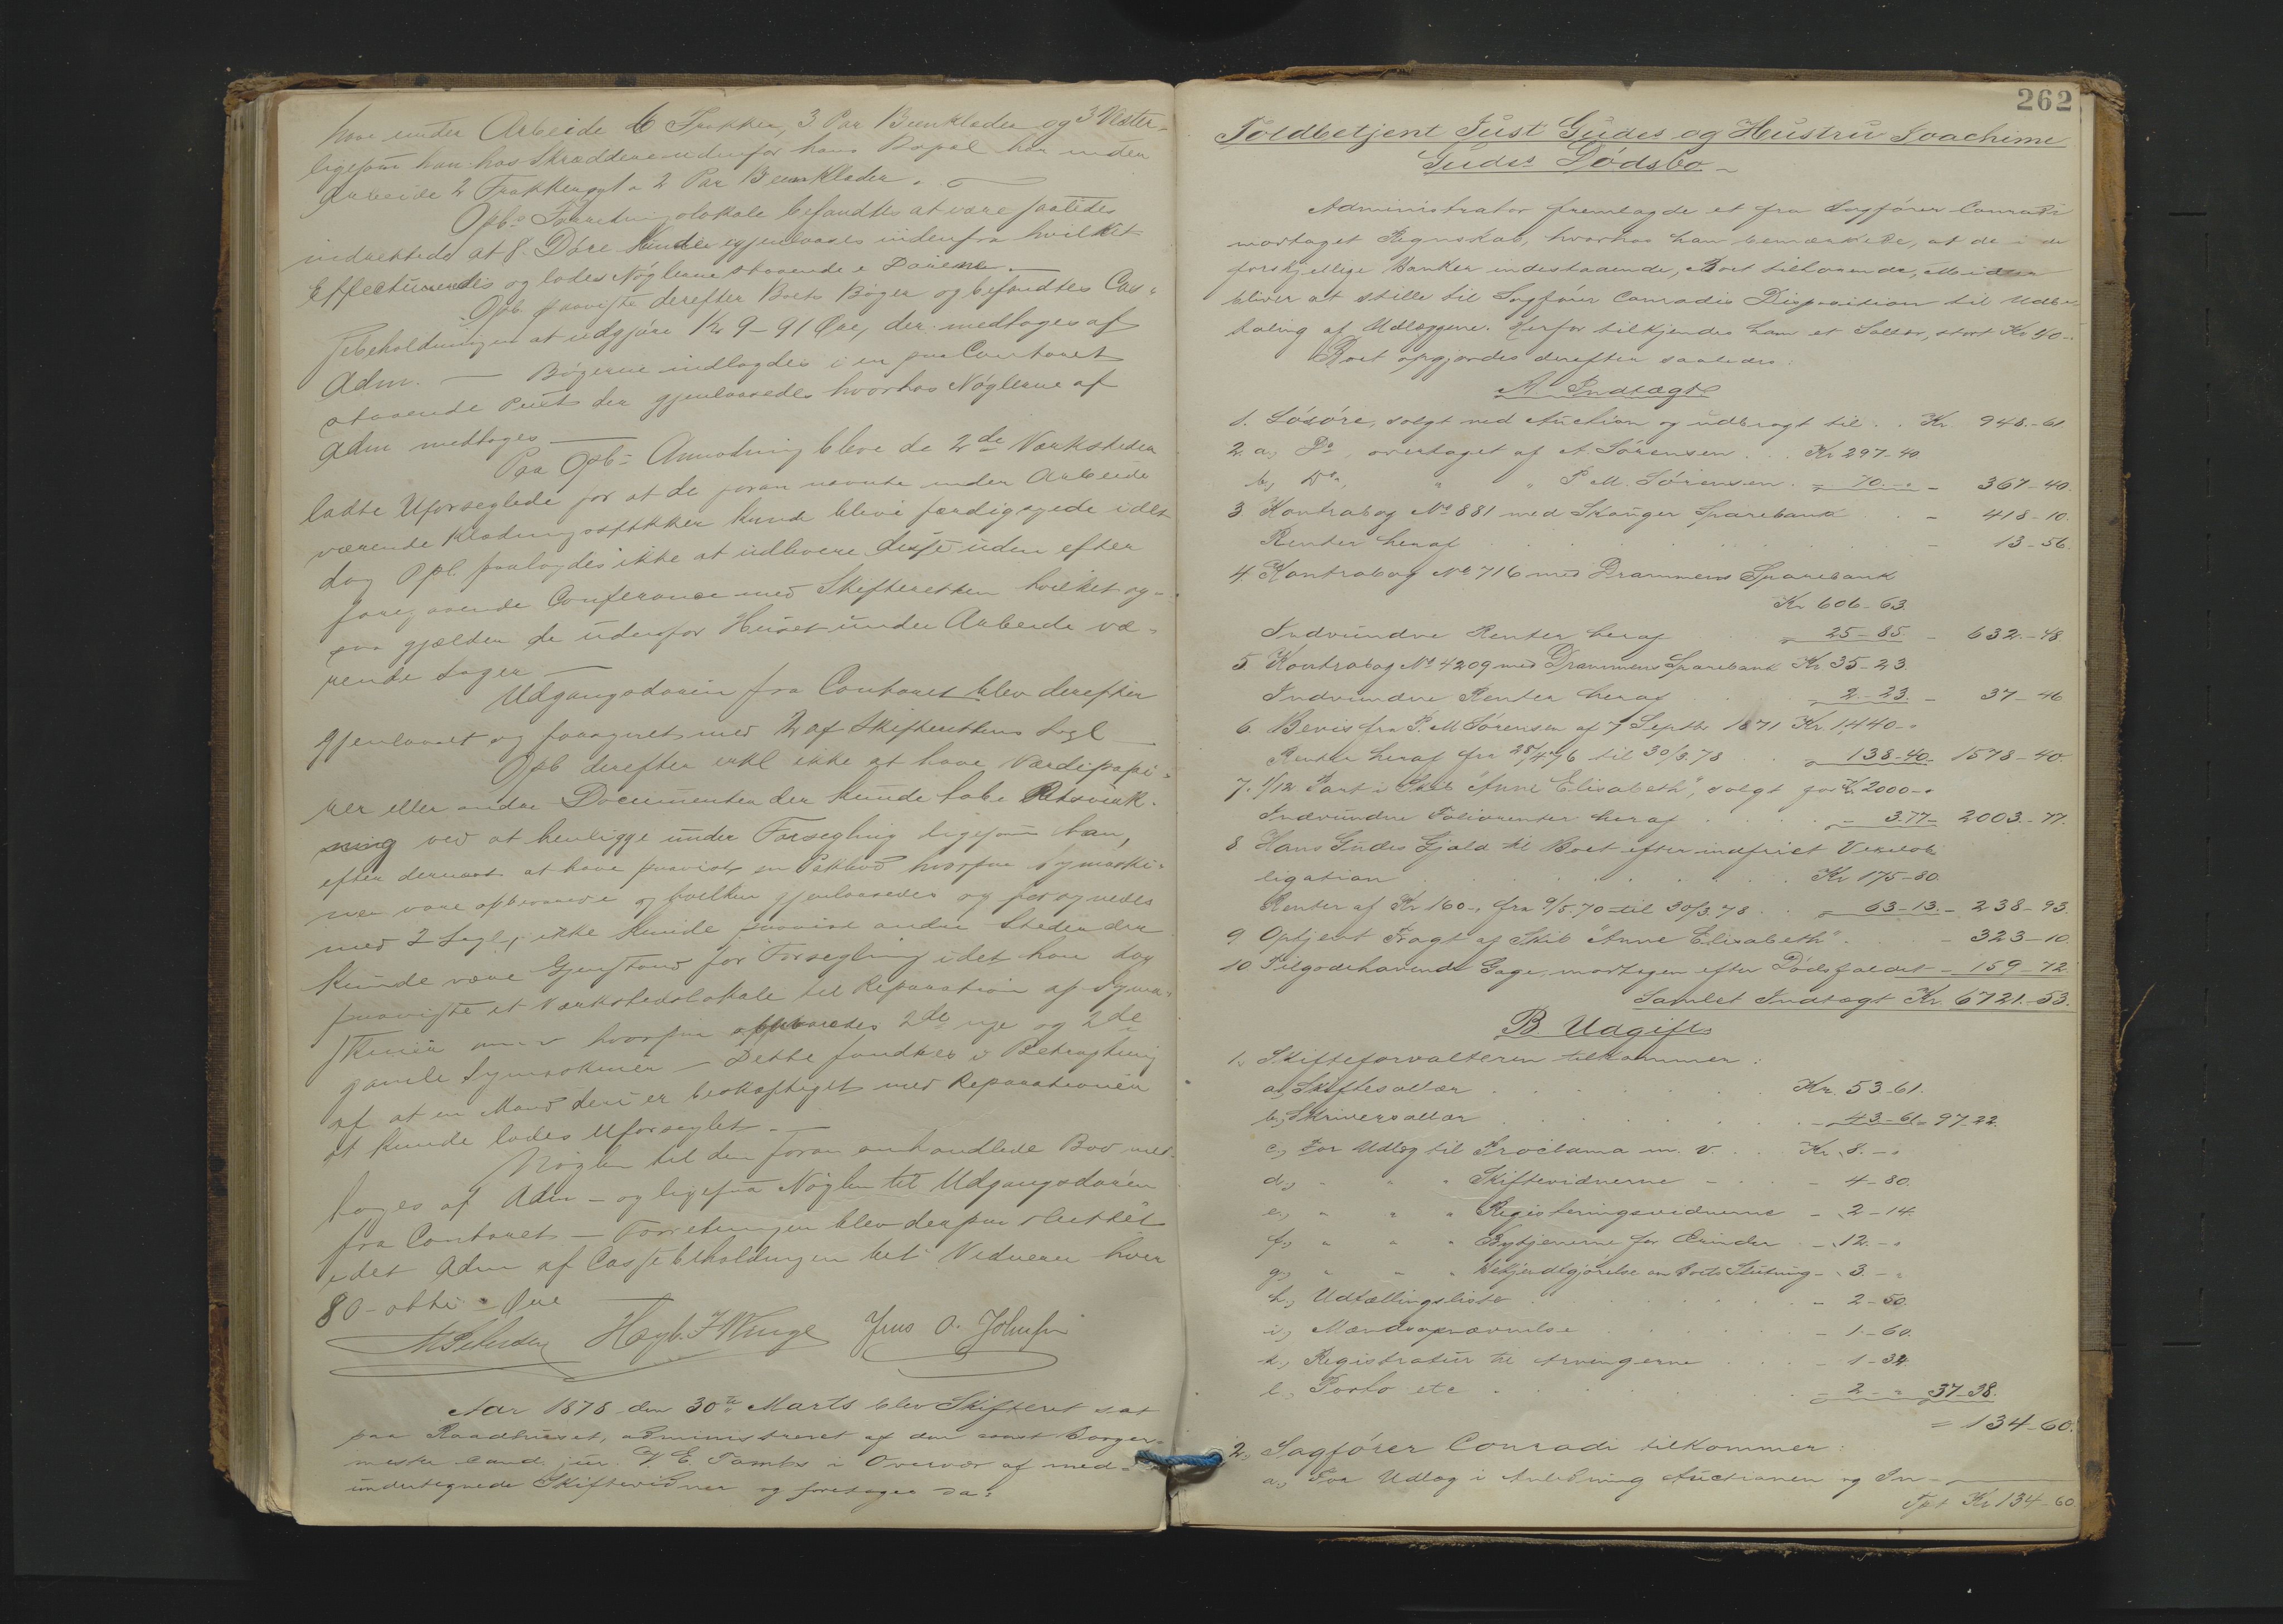 have under Arbeide 6 Frakker, 3 Par Beenklæder og 3 Vester
ligesom han hos Skræddere udenfor hans Bopæl har under
Arbeide 2 Frakker og 2 Par Beenklæder.
Opb.s Forretningslokale befandtes at være saaledes
indrettede at 8 Døre kunde gjenlaases indenfra hvilket
Effectueredes og lodes Nøglerne staaende i Dørene.
Opb. paaviste derefter Boets Bøger og befandtes Cas-
sebeholdningen at udgjøre Kr 9-91 Øre, der medtoges af
Adm. — Bøgerne indlagdes i en paa Contoret
staaende Pult der gjenlaasedes hvorhos Nøglerne af
Adm medtoges —
Paa Opb.s Anmodning bleve de 2de Værksteder
ladte Uforseglede for at de foran nævnte under Arbeide
værende Klædningsstykker kunde blive færdigsyede idet
dog Opb. paalagdes ikke at udlevere disse uden efter
foregaaende Conferance med Skifteretten hvilket og-
saa gjælder de udenfor Huset under Arbeide væ-
rende Sager —
Udgangsdøren fra Contoret blev derefter
gjenlaaset og forsynet med 2 af Skifterettens Segl —
Opb derefter erkl ikke at have Værdipapi-
rer eller andre Documenter der kunde tabe Retsvirk-
ning ved at henligge under Forsegling ligesom han,
efter dernæst at have paavist en Pakbod hvorpaa Symaski-
ner vare opbevarede og hvilken gjenlaasedes og forsynedes
med 2 Segl, ikke kunde paavise andre Steder der
kunde være Gjenstand for Forsegling idet han dog
paaviste et Værkstedslokale til Reparation af Syma-
skiner m. v hvorpaa opbevaredes 2de nye og 2de
gamle Symaskiner — Dette fandtes i Betragtning
af at en Mand deri er beskæftiget med Reparationen
at kunde lades Uforseglet. —
Nøglen til den foran omhandlede Bod med-
toges af Adm — og ligesaa Nøglen til Udgangsdøren
fra Contoret — Forretningen blev derpaa sluttet
idet Adm af Cassebeholdningen bet Vidnerne hver
80 - otti - Øre
Jens O. Johnsen
Aar 1878 den 30te Marts blev Skifteret sat
paa Raadhuset, administreret af den const Borger-
mester cand. jur. V. E. Tambs i Overvær af med-
undertegnede Skiftevidner og foretoges da:
262
Toldbetjent Just Gudes og Hustru Joachime
Gudes Dødsbo —
Administrator fremlagde et fra Sagfører Conradi
modtaget Regnskab, hvorhos han bemærkede, at de i de
forskjellige Banker indestaaende, Boet tilhørende, Midler
bliver at stille til Sagfører Conradis Disposition til Udbe-
taling af Udlæggene. Herfor tilkjendes ham et Sallær, stort Kr 40-.
Boet opgjordes derefter saaledes:
A. Indtægt
1. Løsøre, solgt ved Auction og udbragt til . . Kr 948-61
2. a, Do, overtaget af A. Sørensen . . . Kr 297-40
b, Do, " " P. M. Sørensen . - 70 - " - 367-40.
3 Kontrabog No 881 med Skouger Sparebank . . - 418-10.
Renter heraf . . . - 13-56.
4 Kontrabog No 716 med Drammens Sparebank
Kr 606-63.
Indvundne Renter heraf - 25-85 - 632-48.
5 Kontrabog No 4209 med Drammens Sparebank Kr 35-23.
Indvundne Renter heraf . . - 2-23 - 37-46
6. Bevis fra P. M Sørensen af 7 Septbr 1871 Kr. 1440-"
Renter heraf fra 28/4 76 til 30/3 78 . - 138-40 1578-40.
7. 1/12 Part i Skib "Anne Elisabeth", solgt for Kr 2000-"
Indvundne Foliorenter heraf . . . - 3.77 - 2003-77.
8 Hans Gudes Gjæld til Boet efter indfriet Vexelob-
ligation . . . Kr 175-80.
Renter af Kr 160-, fra 9/5 70 til 30/3 78 . . - 63-13. - 238-93.
9 Optjent Fragt af Skib "Anne Elisabeth" . . - 323-10.
10 Tilgodehavende Gage, modtagen efter Dødsfaldet - 159-72.
Samlet Indtægt Kr. 6721-53.
B Udgift
1. Skifteforvalteren tilkommer:
a, Skiftesallær . . . Kr. 53-61.
b, Skriversallær . . . - 43-61 - 97-22.
c, For Udlæg til Proclama m. v. . . Kr. 8. - "
d, " " " Skiftevidnerne - . . - 4-80.
e, " " " Registreringsvidnerne - 2-14.
f, " " " Bytjenerne for Ærinder - 12. - "
g, " " " Bekjendtgjørelse om Boets Slutning - 3. - "
h, Udtællingsliste . . . - 2-50.
i, Mandsopnævnelse . . . - 1-60.
k, Registratur til Arvingerne . . . - 1-34
l, Porto etc . . . - 2 - " 37-38.
= 134-60.
2, Sagfører Conradi tilkommer:
a, For Udlæg i Anledning Auctionen og In-
Tpt Kr 134-60